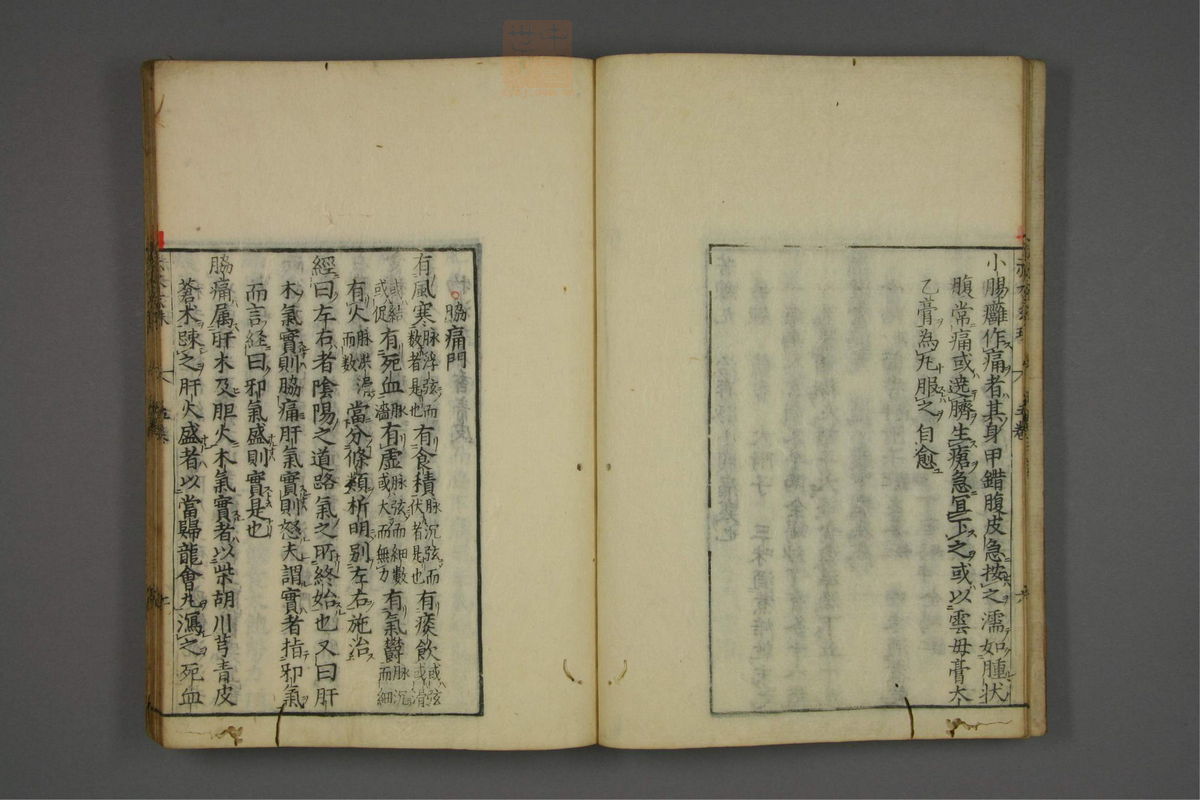 小腸癰作痛者其身甲錯腹皮急按之濡如腫状
腹常痛或遶臍生瘡急冝下之或以雲母膏太
乙膏為丸服之自愈
脇痛門
有風寒脉浮弦而数者是也有食積脉沉弦而伏者是也有痰飲或弦或滑
或結或促有死血脉濇有虚脉弦而細数或大而無力有氣鬱脉沉而細
有火脉洪滑而数當分條類析明別左右施治
經曰左右者陰陽之道路氣之所終始也又曰肝
木氣實則脇痛肝氣實則怒夫謂實者指邪氣
而言経曰邪氣盛則實是也
脇痛属肝木及胆火木氣實者以柴胡川芎青皮
蒼术疎之肝火盛者以當歸龍會丸瀉之死血